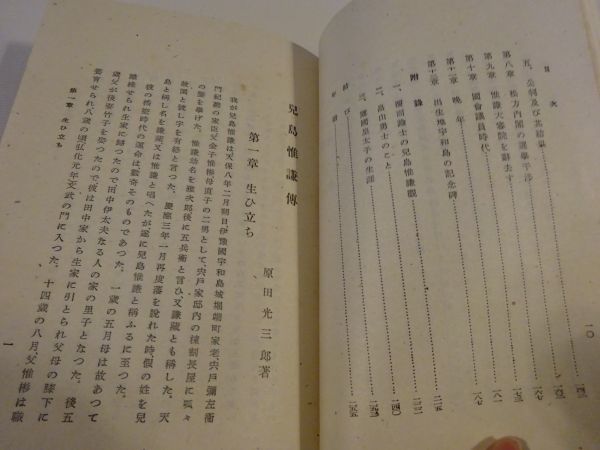 目次
一〇
五、公判及び其結果
第八章 松方内閣の選擧干渉
第九章 惟謙大審院を辭去す
第十章 國會議員時代
第十一章 晩年
第十二章 出生地宇和島の記念碑
附錄
一、穗積博士の兒島惟謙觀
二、畠山勇子のこと
三、露國皇太子の生涯
結び
兒島惟謙傳
原田光三郎著
第一章 生ひ立ち
我が兒島惟謙は天保八年二月朔日伊豫國宇和島城堀端町家老宍戸彌左衛
門紀勵の家臣父金子惟彬母直子の二男として、宍戸家邸内の棟割長屋に呱々
の聲を擧げた。惟謙幼名を雅次郎後に五兵衛と言ひ、又謙藏とも稱した。天
赦園と號し字を有終と言つた。慶應三年一月再度藩を脱れた時假の姓を兒
島と稱し名を謙藏又は惟謙と唱へたが遂に兒島惟謙と稱ふるに至つた。
彼の搖籃時代の運命は數奇そのものであつた。一歳の五月母は故あつて
離縁せられ生家に歸つたので田中伊太夫なる人の家の里子となつた。後五
歳父が後妻竹子を娶つたので彼は田中家から生家に引とられ父母の膝下に
養育せられ八歳の頃弘化元年文武の門に入つた。十四歳の八月、父惟彬は職
第一章 生ひ立ち
一